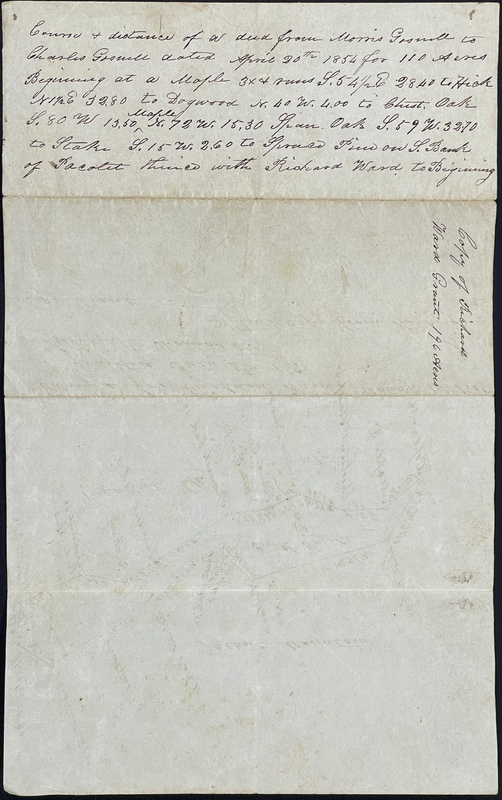 Course & distance of a deed from Morris Gosnell to
Charles Gosnell dated April 20th 1854 for 110 Acres
Begining at a Maple 3x4 runs S. 54 1/2 E 28.40 to Hick
32.80 to Dogwood N. 40 W. 4.00 to Chest. Oak
S. 80 W 13.50 Maple N. 72 W. 15.30 Span. Oak S. 59 W. 32.70
to Stake S. 15 W. 2.60 to Spruce Pine on S. Bank
of Pacolet thence with Richard Ward to Begining
Copy of Richard
Ward Grant 196 Acres